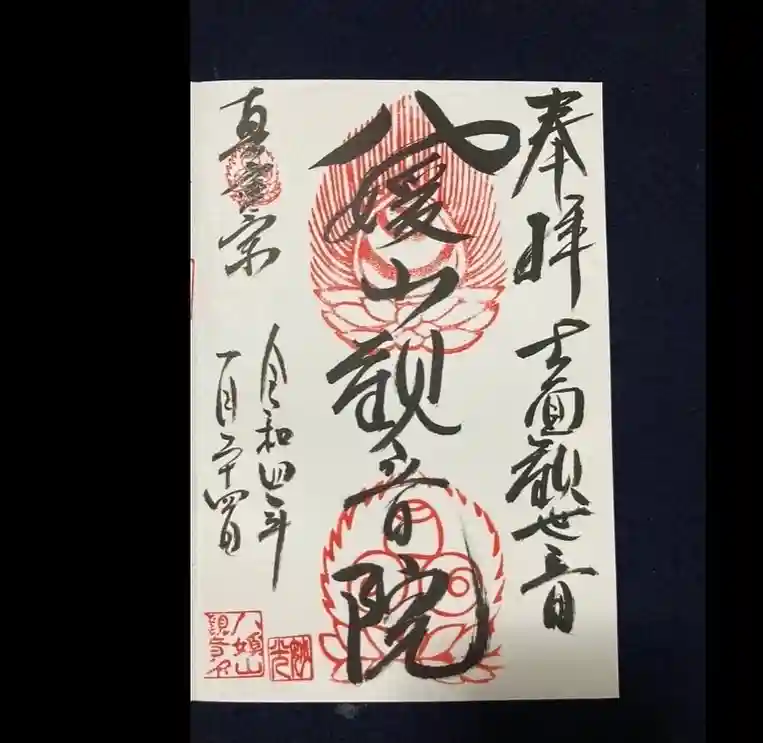 奉拝
十一面観世音
八媛山観音院
真言宗
令和四年
一月二十四日
八媛山
観音院